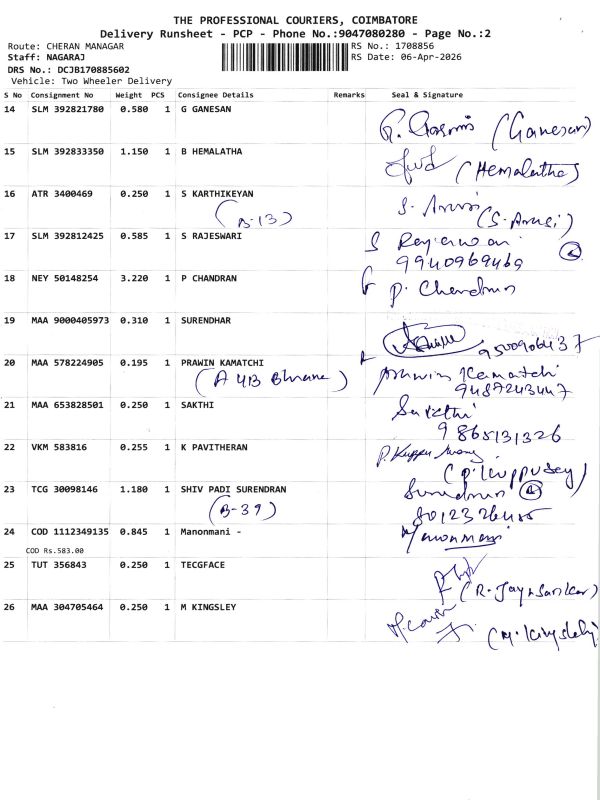 THE PROFESSIONAL COURIERS, COIMBATORE
Delivery Runsheet - PCP - Phone No.:9047080280 - Page No.:2
Route: CHERAN MANAGAR RS No.: 1708856
Staff: NAGARAJ RS Date: 06-Apr-2026
DRS No.: DCJB170885602
Vehicle: Two Wheeler Delivery
S No Consignment No Weight PCS Consignee Details Remarks Seal & Signature
14 SLM 392821780 0.580 1 G GANESAN
(Ganesan)
15 SLM 392833350 1.150 1 B HEMALATHA
(Hemalatha)
16 ATR 3400469 0.250 1 S KARTHIKEYAN
(B-13) (S. Arusi)
17 SLM 392812425 0.585 1 S RAJESWARI
9940969469
18 NEY 50148254 3.220 1 P CHANDRAN
P. Chandran
19 MAA 9000405973 0.310 1 SURENDHAR
20 MAA 578224905 0.195 1 PRAWIN KAMATCHI
(A 4B
9487243447
21 MAA 653828501 0.250 1 SAKTHI
Sakthi
9865131326
22 VKM 583816 0.255 1 K PAVITHERAN
23 TCG 30098146 1.180 1 SHIV PADI SURENDRAN
(B-39)
24 COD 1112349135 0.845 1 Manonmani -
COD Rs.583.00
25 TUT 356843 0.250 1 TECGFACE
(R. Jaysankar)
26 MAA 304705464 0.250 1 M KINGSLEY